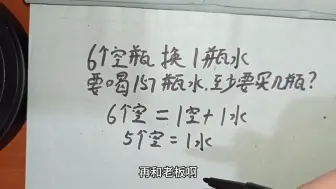 6个空瓶 换 1瓶水
要喝157瓶水.至少要买几瓶?
6个空=1空+1水
5个空=1水
再和老板啊